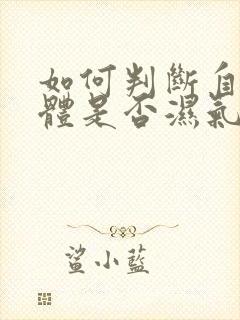 如何判斷自
體是否濕氣
鯊小藍